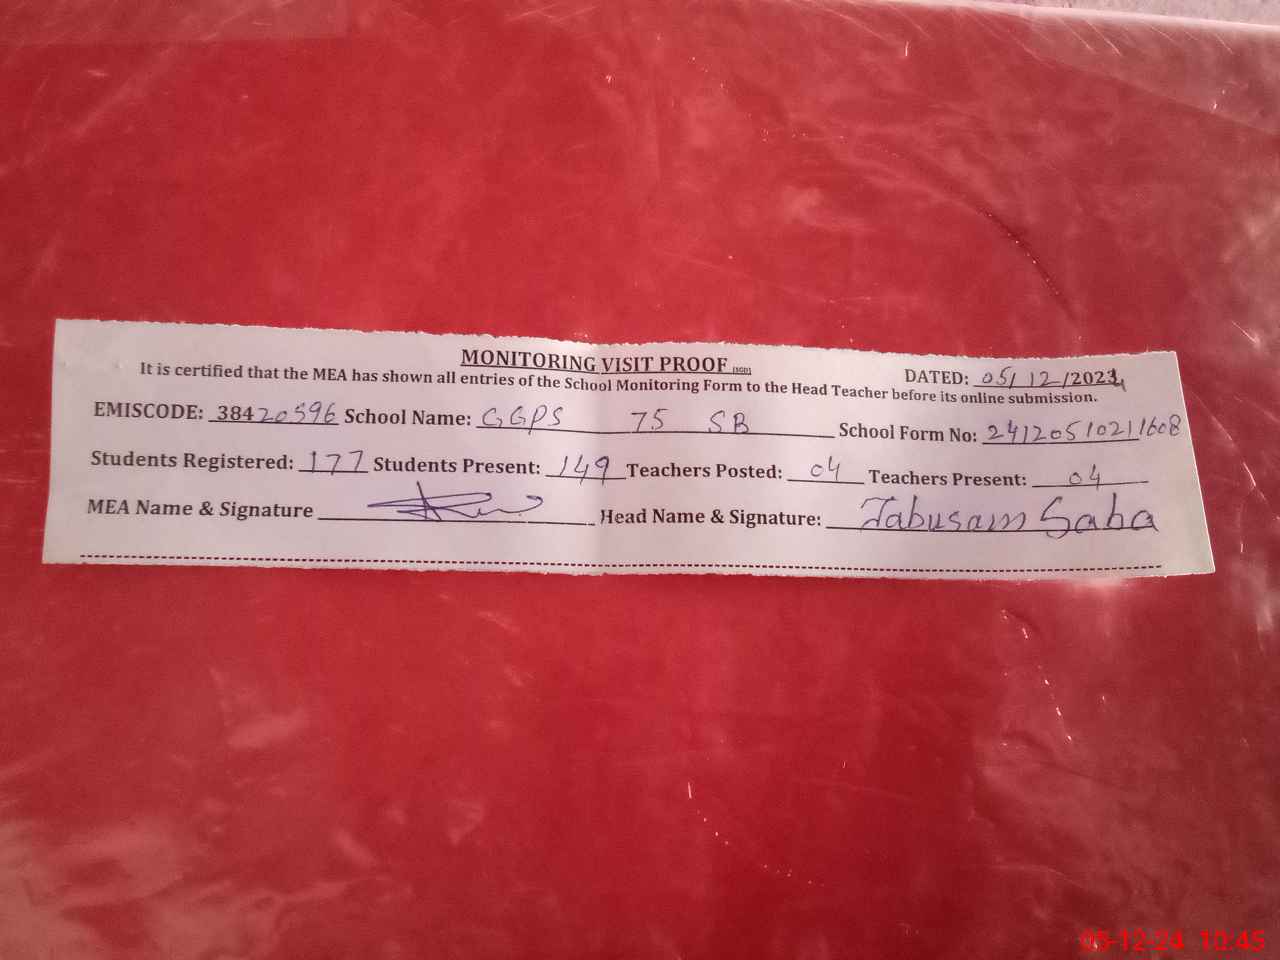 MONITORING VISIT PROOF (SGD)
DATED: 05/12/2024
It is certified that the MEA has shown all entries of the School Monitoring Form to the Head Teacher before its online submission.
EMISCODE: 38420596 School Name: GGPS 75 SB School Form No: 24120510211608
Students Registered: 177 Students Present: 149 Teachers Posted: 04 Teachers Present: 04
MEA Name & Signature Head Name & Signature: Tabusam Saba
05-12-24 10:45